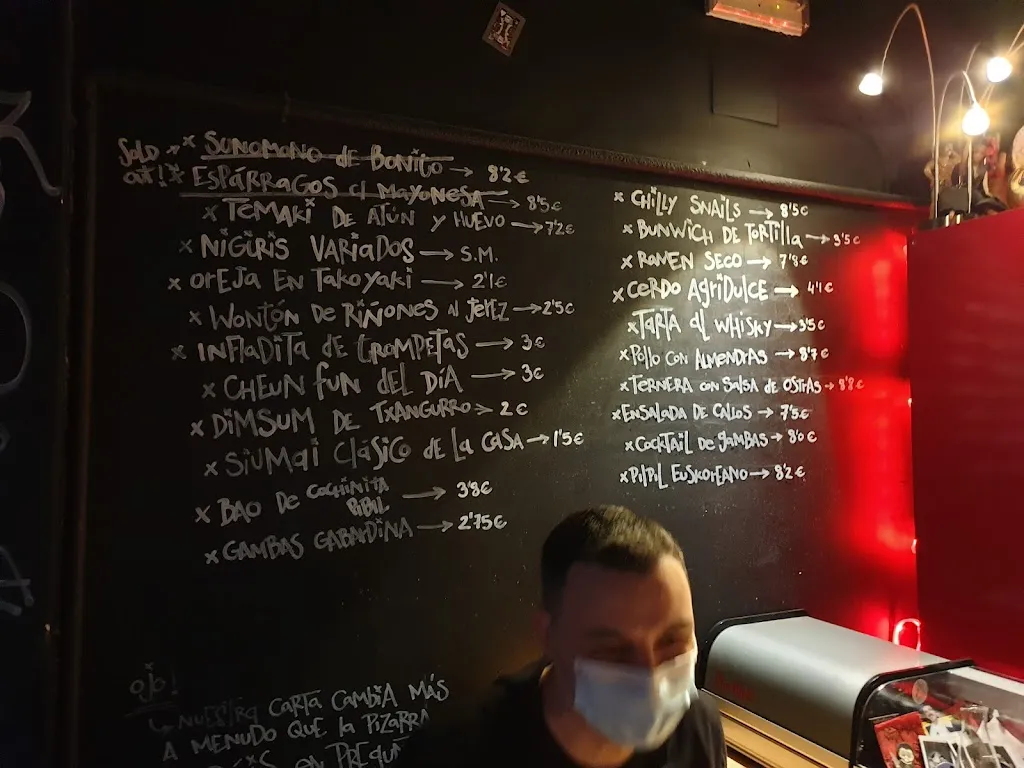 Solo → x Sunomono de Bonito → 8'2€
oti! x Espárragos cl mayonesa → 8'5€
x Temaki de atún y huevo → 7'2€
x Nigiris variados → S.M.
x Oreja en Takoyaki → 2'1€
x Wontón de riñones al Jerez → 2'5€
x Infladita de trompetas → 3€
x Cheun fun del día → 3€
x Dimsum de Txangurro → 2€
x Siumai clásico de la casa → 1'5€
x Bao de cochinita
pibil → 3'8€
x Gambas gabardina → 2'75€
x Chilly snails → 8'5€
x Bunwich de tortilla → 3'5€
x Ramen seco → 7'8€
x Cerdo agridulce → 4'1€
x Tarta al whisky → 3'5€
x Pollo con almendras → 8'7€
x Ternera con salsa de ostras → 8'8€
x Ensalada de callos → 7'5€
x Cocktail de gambas → 8'0€
x Pilpil Euskoreano → 8'2€
ojo!
↳ Nuestra carta cambia más
a menudo que la pizarra